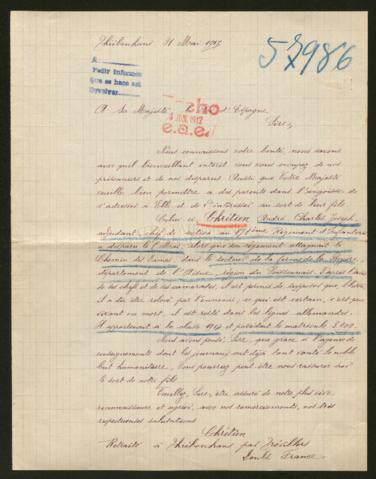 Thiébouhans 31 Mai 1917
57986
A
Pedir informes
que se hace así
Devolver
A Sa Majesté d'Espagne,
cho
8 JUN. 1917
e.a.e.
Sire,
Nous connaissons votre bonté, nous savons
avec quel bienveillant intérêt vous vous occupez de nos
prisonniers et de nos disparus. Aussi que Votre Majesté
veuille bien permettre à des parents dans l'angoisse de
s'adresser à Elle et de l'intéresser au sort de leur fils
Chrétien André Charles Joseph,
adjudant, chef de section au Régiment d'Infanterie
disparu le lors que son régiment attaquait le
Chemin des Dames dans le secteur de la ferme de la
département de l'Aisne, région du Soissonnais. D'après l'avis
de ses chefs et de ses camarades, il est permis de supposer que blessé
il a dû être relevé par l'ennemi, ce qui est certain, c'est que
vivant ou mort, il est resté dans les lignes allemandes.
Il appartenait à la classe 1914 et possédait le matricule
Nous avons pensé, Sire, que grâce à l'agence de
renseignements dont les journaux ont déjà tant vanté le noble
but humanitaire, Vous pourriez peut être nous rassurer sur
le sort de notre fils.
Veuillez, Sire, être assuré de notre plus vive
reconnaissance et agréer, avec nos remerciements, nos très
respectueuses salutations
Chrétien
Retraité à Thiébouhans par Trévillers
Doubs France